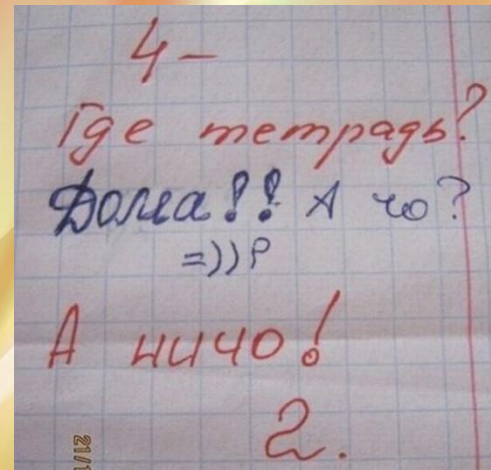 4-
Где тетрадь?
Дома!! А чо?
=))P
А ничо!
2.
21/1